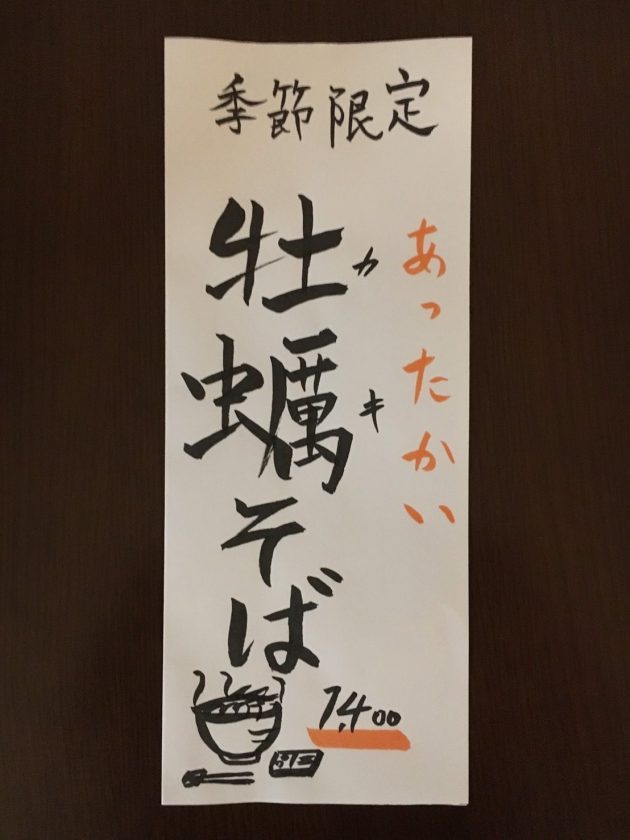 季節限定
あったかい
牡蠣そば
カキ
1,400